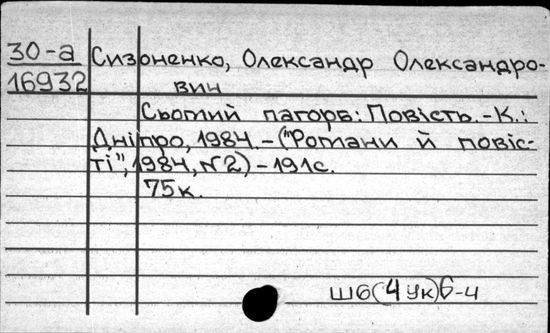 30-а Сизоненко, Олександр Олександро-
16932 вич
Сьомий пагорб: Повість. - К.:
Дніпро, 1984. - ("Романи й повіс-
ті", 1984, №2) - 191с.
75к.
Ш6(4Ук)6-4